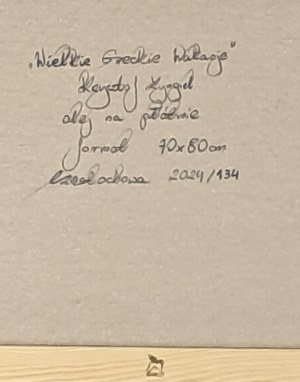 „Wielkie Greckie Wakacje"
Krzysztof Żyngiel
olej na płótnie
format 70x80cm
Częstochowa 2024/134